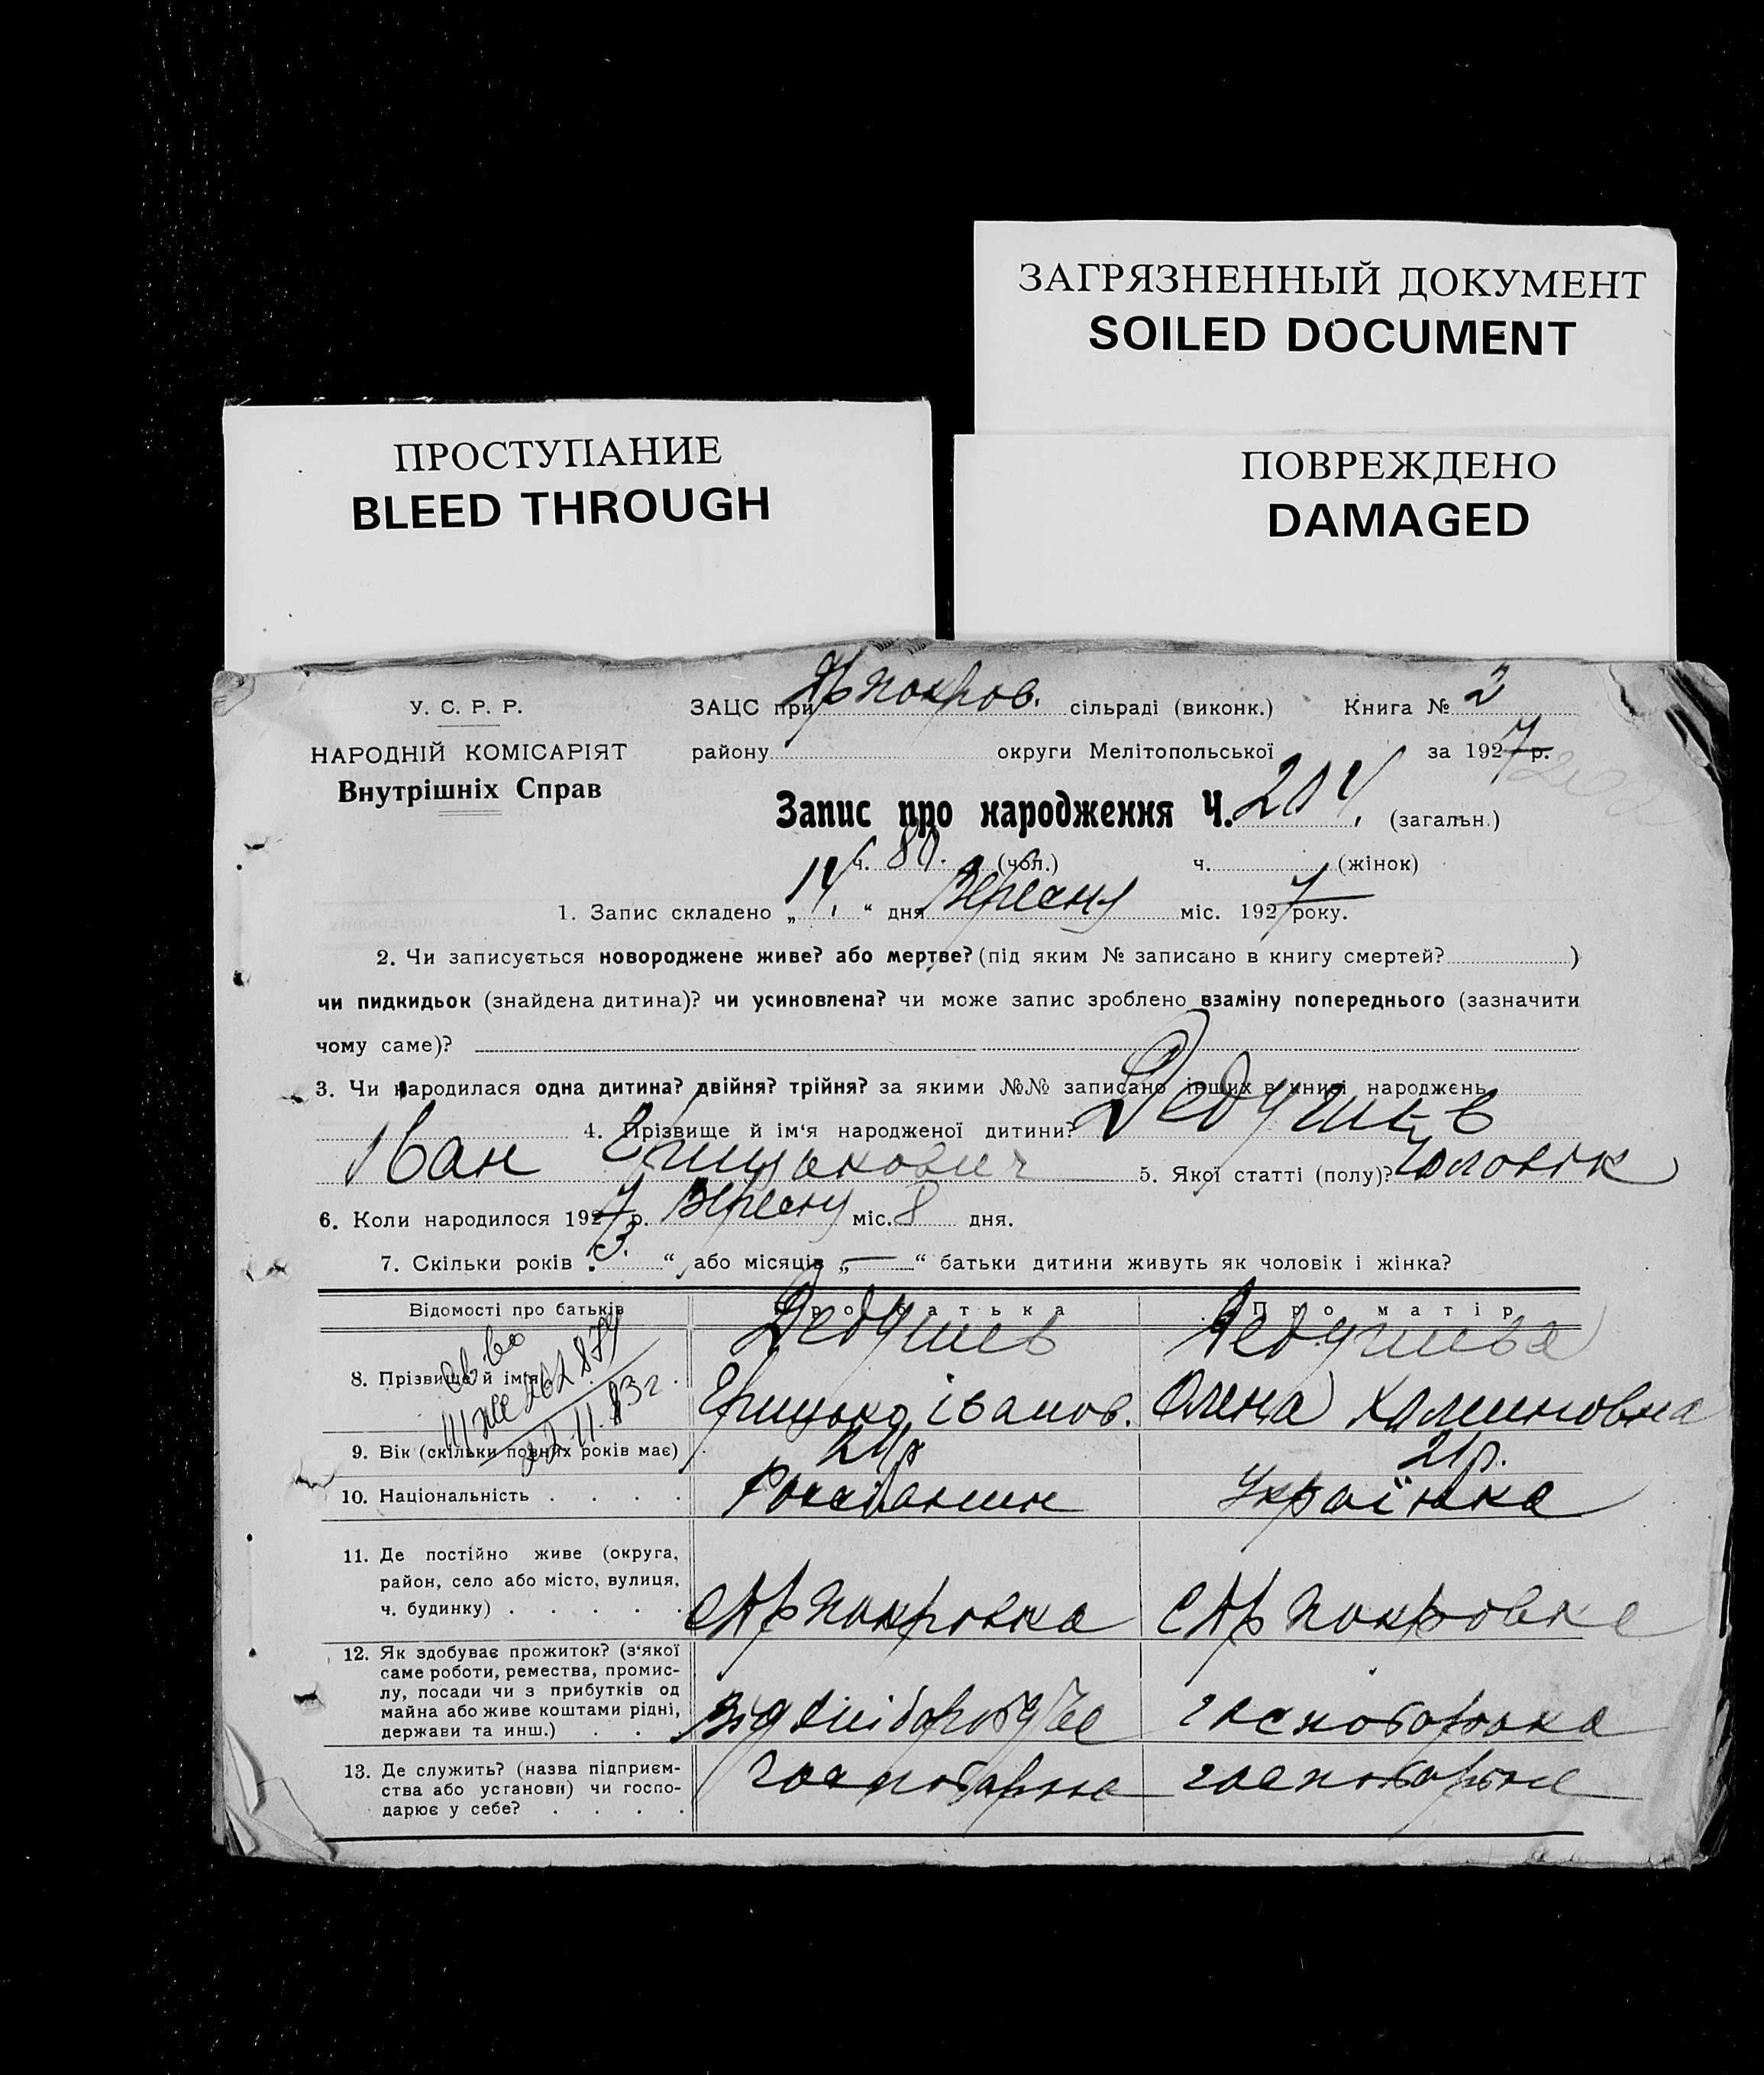 ЗАГРЯЗНЕННЫЙ ДОКУМЕНТ
SOILED DOCUMENT
ПРОСТУПАНИЕ
BLEED THROUGH
ПОВРЕЖДЕНО
DAMAGED
У. С. Р. Р.
НАРОДНІЙ КОМІСАРІЯТ
Внутрішніх Справ
ЗАЦС при покров. сільраді (виконк.) Книга № 2
району округи Мелітопольської за 1927 р.
Запис про народження Ч. 204. (загальн.)
ч. 80. (чол.) ч. (жінок)
1. Запис складено „14.“ дня Вересня міс. 1927 року.
2. Чи записується новороджене живе? або мертве? (під яким № записано в книгу смертей? )
чи пидкидьок (знайдена дитина)? чи усиновлена? чи може запис зроблено взаміну попереднього (зазначити
чому саме)?
3. Чи народилася одна дитина? двійня? трійня? за якими №№ записано інших в книзі народжень
4. Прізвище й ім‘я народженої дитини? Дедушев
Іван Грицькович 5. Якої статті (полу)? Чоловік
6. Коли народилося 1927 р. Вересня міс. 8 дня.
7. Скільки років „3.“, або місяців „—“ батьки дитини живуть як чоловік і жінка?
Відомості про батьків Про батька Про матір
8. Прізвище й ім‘я Дедушев Дедушева
Грицько Іванов. Олена Калиновна
9. Вік (скільки повних років має) 21р.
10. Національність Українка
11. Де постійно живе (округа,
район, село або місто, вулиця,
ч. будинку) Покровка Покровка
12. Як здобуває прожиток? (з‘якої
саме роботи, ремества, промис-
лу, посади чи з прибутків од
майна або живе коштами рідні,
держави та инш.)
13. Де служить? (назва підприєм-
ства або установи) чи госпо-
дарює у себе?